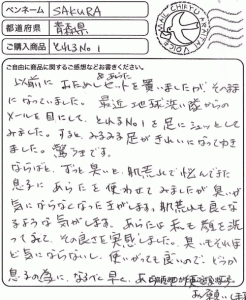 ペンネーム SAKURA
都道府県 青森県
ご購入商品 とれるNo1
CHIKYU ARAITAI VOICE FAN
ご自由に商品に関するご感想などお書きください。
以前に おためしセットを買いましたが、その話
になっていました。 最近 地球洗い隊からの
メールを目にして、とれるNo1を足にシュッとして
みました。すると、みるみる足がきれいになってゆき
ました。 驚きです。
ならばと、ずっと臭いと、肌荒れで悩んできた
息子に あらたを使わせてみましたが臭いが
気にならなくなったきがします。肌荒れも良くな
るような気がします。あらたは私も顔を洗
ってみて、その良さを実感しました。臭いもそれほ
ど気にならないし、使いがっても良いので、どうか
息子の為に、なるべく早く、あ
お願いします